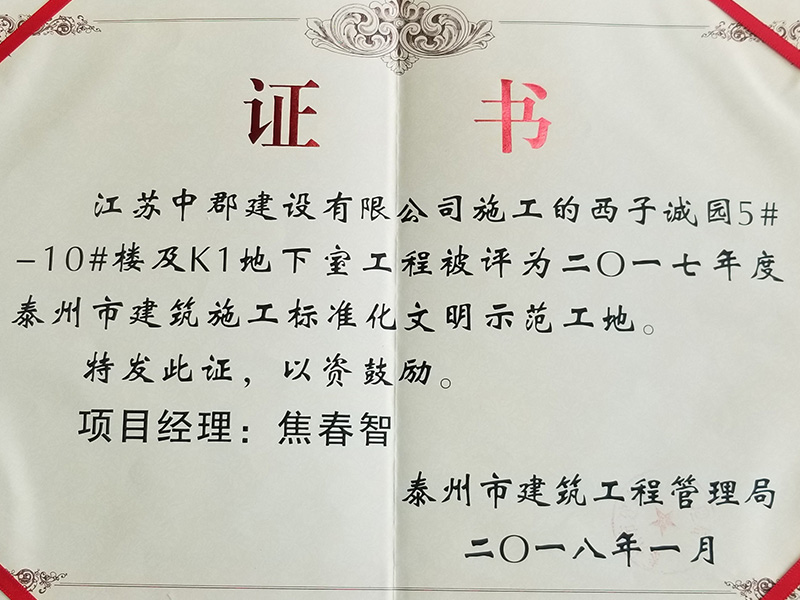 证书
江苏中郡建设有限公司施工的西子诚园5#
-10#楼及K1地下室工程被评为二〇一七年度
泰州市建筑施工标准化文明示范工地。
特发此证，以资鼓励。
项目经理：焦春智
泰州市建筑工程管理局
二〇一八年一月